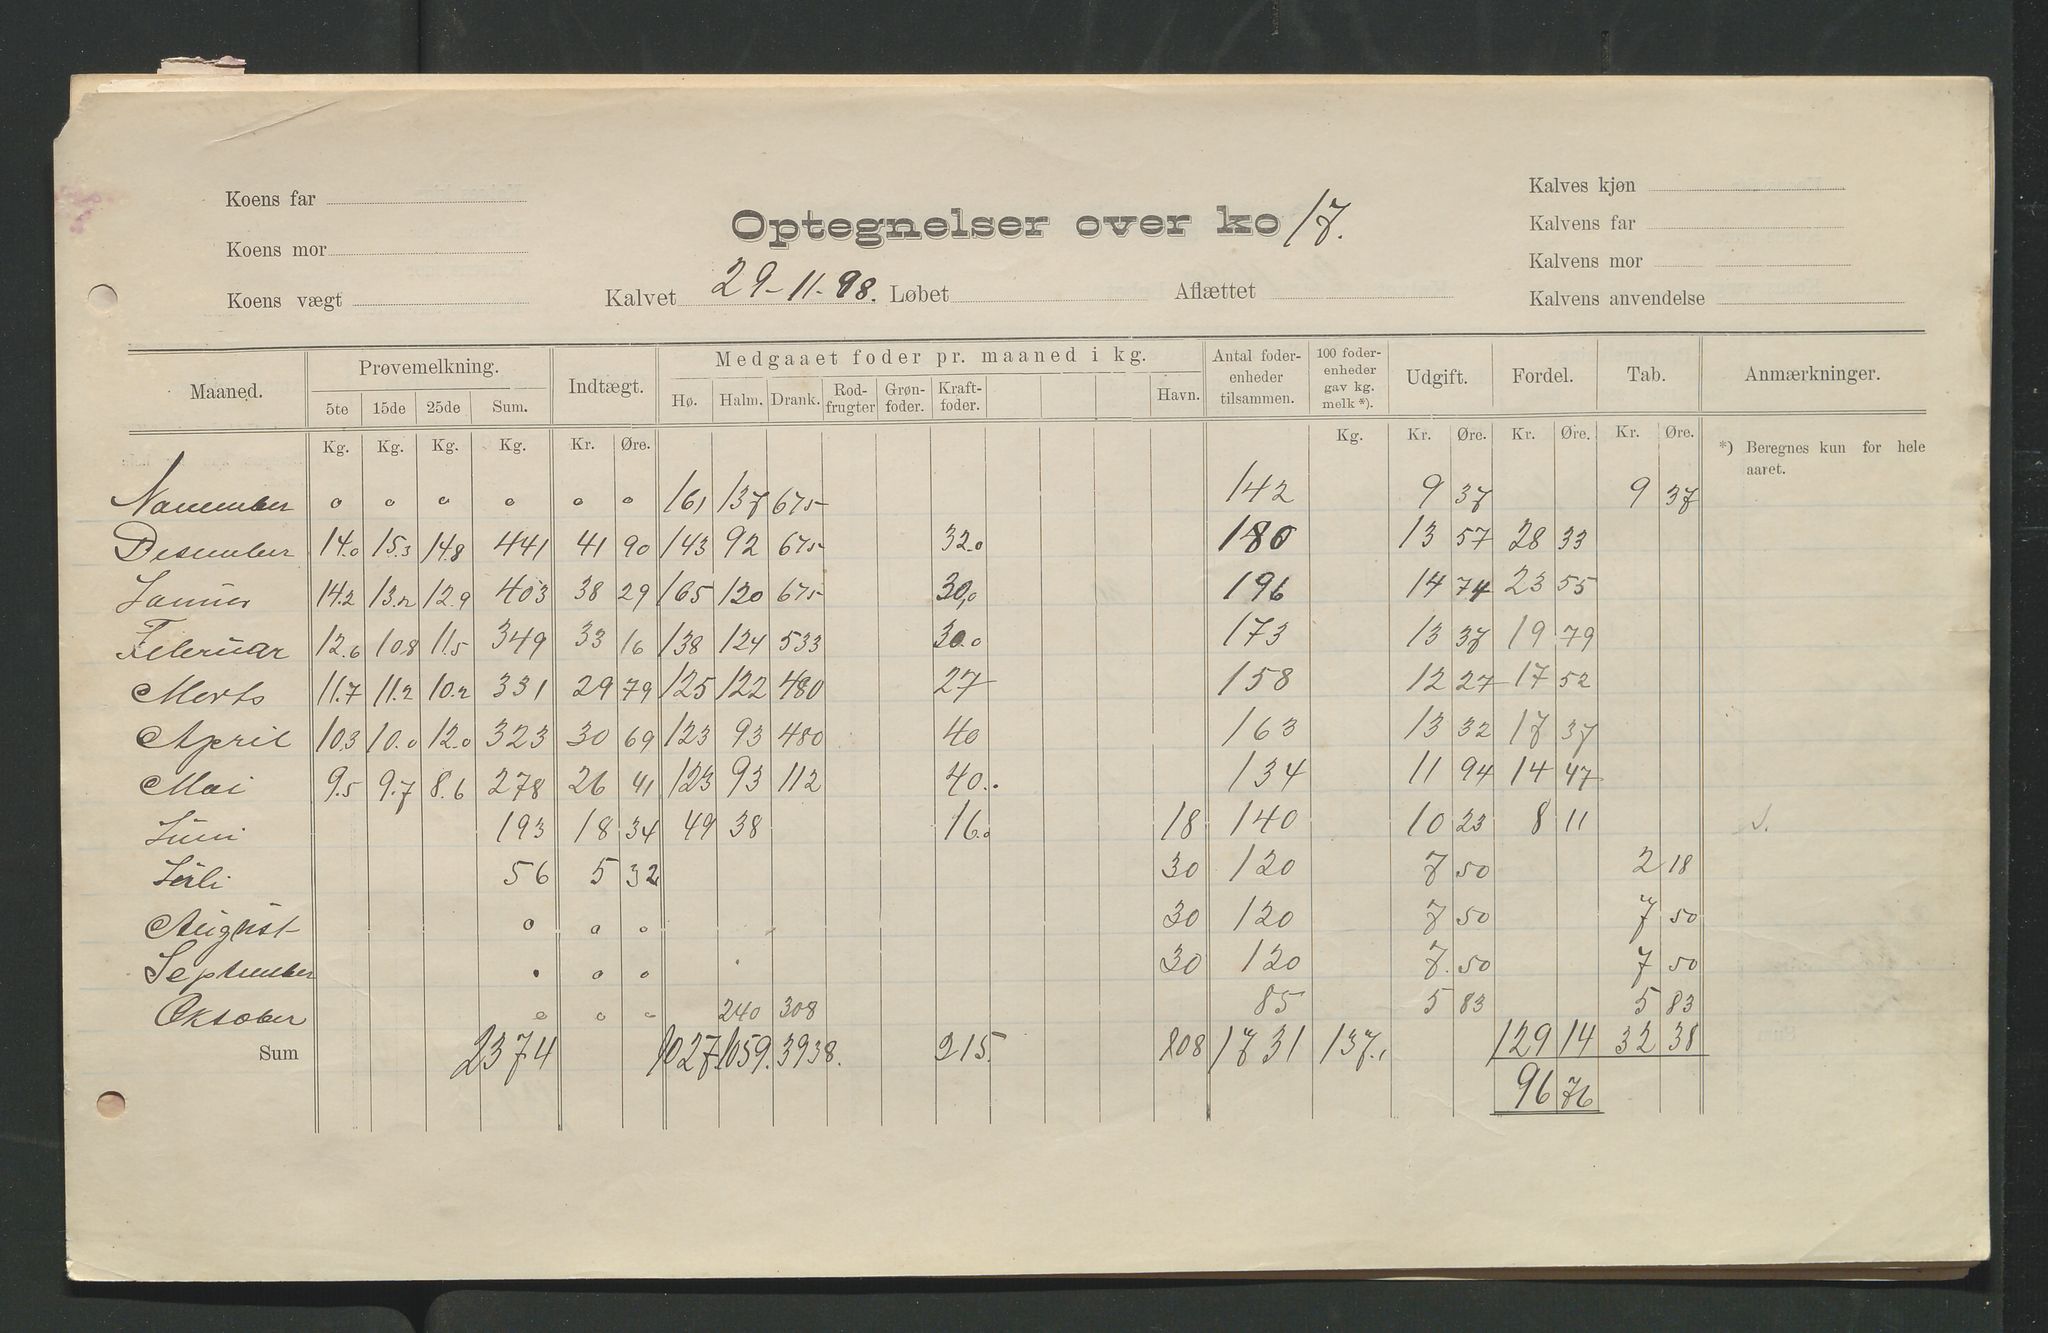 Koens far
Koens mor
Koens vægt
Optegnelser over ko 17.
Kalvet 29-11-98. Løbet Aflættet
Kalves kjøn
Kalvens far
Kalvens mor
Kalvens anvendelse
Maaned. Prøvemelkning. Indtægt. Medgaaet foder pr. maaned i kg. Antal foder-enheder tilsammen. 100 foder-enheder gav kg. melk *). Udgift. Fordel. Tab. Anmærkninger.
5te 15de 25de Sum. Hø. Halm. Drank. Rod-frugter Grøn-foder. Kraft-foder. Havn.
Kg. Kg. Kg. Kg. Kr. Øre. Kg. Kr. Øre. Kr. Øre. Kr. Øre. *) Beregnes kun for hele aaret.
November 0 0 0 0 0 0 161 137 675 142 9 37 9 37
Desember 14.0 15.3 14.8 441 41 90 143 92 675 32.0 180 13 57 28 33
Januer 14.2 13.2 12.9 403 38 29 165 120 675 30,0 196 14 74 23 55
Februar 12.6 10.8 11.5 349 33 16 138 124 533 30.0 173 13 37 19 79
Merts 11.7 11.2 10.2 331 29 79 125 122 480 27 158 12 27 17 52
April 10.3 10.0 12.0 323 30 69 123 93 480 40 163 13 32 17 37
Mai 9.5 9.7 8.6 278 26 41 123 93 112 40. 134 11 94 14 47
Juni 193 18 34 49 38 16.0 18 140 10 23 8 11
Juli 56 5 32 30 120 7 50 2 18
August 0 0 0 30 120 7 50 7 50
September 0 0 30 120 7.50 7 50
Oktober 0 0 0 240 308 85 5 83 5 83
Sum 2374 1027. 1059. 3938. 215. 108 1731 137.1 129 14 32 38
96 76